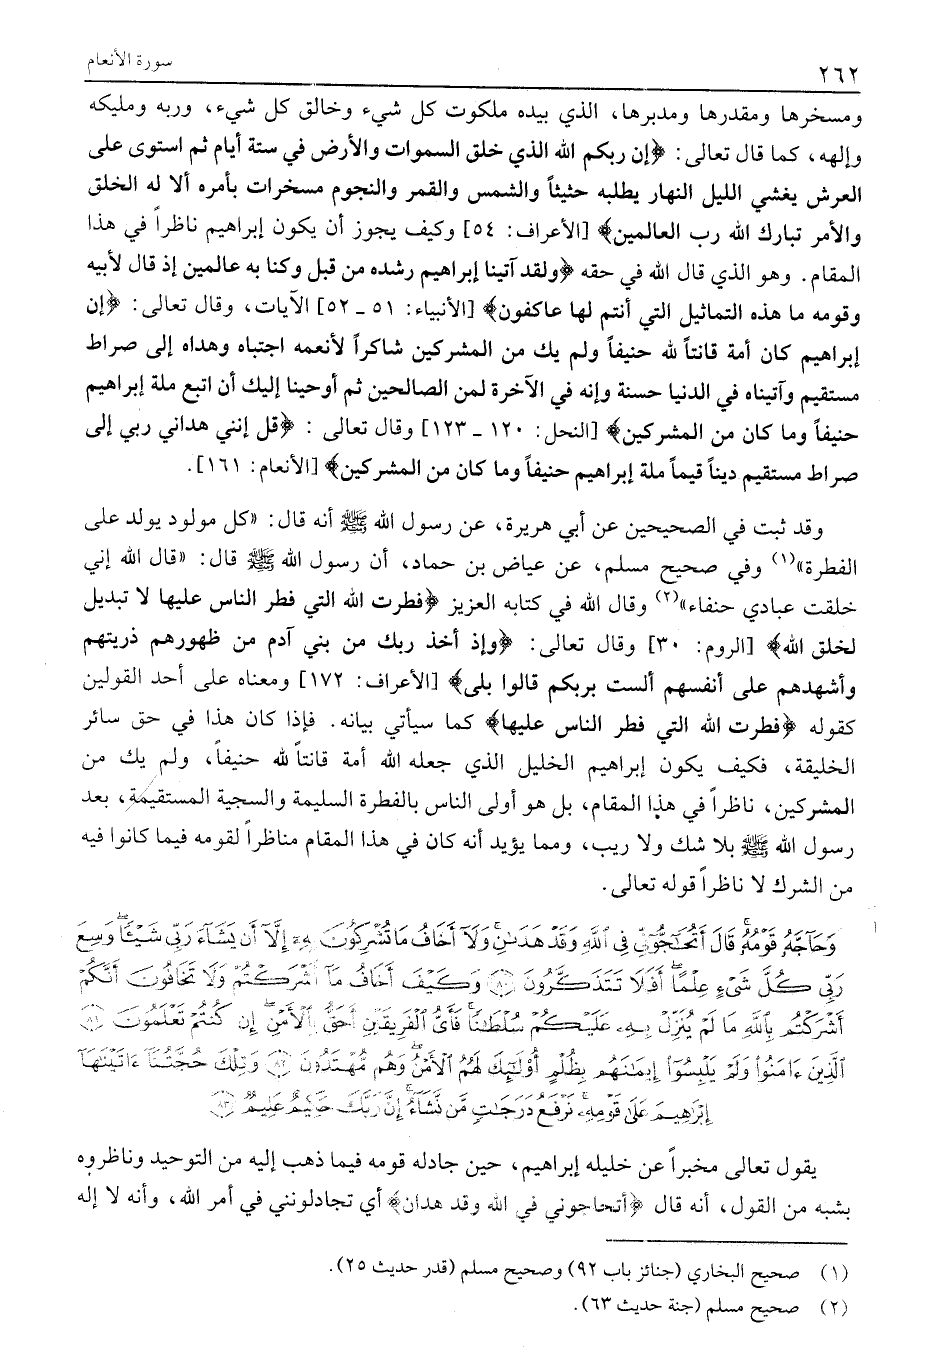 ٢٦٢
سورة الأنعام
ومسخرها ومقدرها ومدبرها، الذي بيده ملكوت كل شيء وخالق كل شيء، وربه ومليكه
وإلهه، كما قال تعالى: ﴿إن ربكم الله الذي خلق السموات والأرض في ستة أيام ثم استوى على
العرش يغشي الليل النهار يطلبه حثيثاً والشمس والقمر والنجوم مسخرات بأمره ألا له الخلق
والأمر تبارك الله رب العالمين﴾ [الأعراف: ٥٤] وكيف يجوز أن يكون إبراهيم ناظراً في هذا
المقام. وهو الذي قال الله في حقه ﴿ولقد آتينا إبراهيم رشده من قبل وكنا به عالمين إذ قال لأبيه
وقومه ما هذه التماثيل التي أنتم لها عاكفون﴾ [الأنبياء: ٥١ ـ ٥٢] الآيات، وقال تعالى: ﴿إن
إبراهيم كان أمة قانتاً لله حنيفاً ولم يك من المشركين شاكراً لأنعمه اجتباه وهداه إلى صراط
مستقيم وآتيناه في الدنيا حسنة وإنه في الآخرة لمن الصالحين ثم أوحينا إليك أن اتبع ملة إبراهيم
حنيفاً وما كان من المشركين﴾ [النحل: ١٢٠ ـ ١٢٣] وقال تعالى : ﴿قل إنني هداني ربي إلى
صراط مستقيم ديناً قيماً ملة إبراهيم حنيفاً وما كان من المشركين﴾ [الأنعام: ١٦١].
وقد ثبت في الصحيحين عن أبي هريرة، عن رسول الله ﷺ أنه قال: «كل مولود يولد على
الفطرة»(١) وفي صحيح مسلم، عن عياض بن حماد، أن رسول الله ﷺ قال: «قال الله إني
خلقت عبادي حنفاء»(٢) وقال الله في كتابه العزيز ﴿فطرت الله التي فطر الناس عليها لا تبديل
لخلق الله﴾ [الروم: ٣٠] وقال تعالى: ﴿وإذ أخذ ربك من بني آدم من ظهورهم ذريتهم
وأشهدهم على أنفسهم ألست بربكم قالوا بلى﴾ [الأعراف: ١٧٢] ومعناه على أحد القولين
كقوله ﴿فطرت الله التي فطر الناس عليها﴾ كما سيأتي بيانه. فإذا كان هذا في حق سائر
الخليقة، فكيف يكون إبراهيم الخليل الذي جعله الله أمة قانتاً لله حنيفاً، ولم يك من
المشركين، ناظراً في هذا المقام، بل هو أولى الناس بالفطرة السليمة والسجية المستقيمة، بعد
رسول الله ﷺ بلا شك ولا ريب، ومما يؤيد أنه كان في هذا المقام مناظراً لقومه فيما كانوا فيه
من الشرك لا ناظراً قوله تعالى.
وَحَاجَّهُ قَوْمُهُ قَالَ أَتُحَاجُّونِّي فِي اللَّهِ وَقَدْ هَدَانِ وَلَا أَخَافُ مَا تُشْرِكُونَ بِهِ إِلَّا أَن يَشَاءَ رَبِّي شَيْئًا وَسِعَ
رَبِّي كُلَّ شَيْءٍ عِلْمًا أَفَلَا تَتَذَكَّرُونَ ﴿٨٠﴾ وَكَيْفَ أَخَافُ مَا أَشْرَكْتُمْ وَلَا تَخَافُونَ أَنَّكُمْ
أَشْرَكْتُم بِاللَّهِ مَا لَمْ يُنَزِّلْ بِهِ عَلَيْكُمْ سُلْطَانًا فَأَيُّ الْفَرِيقَيْنِ أَحَقُّ بِالْأَمْنِ إِن كُنتُمْ تَعْلَمُونَ ﴿٨١﴾
الَّذِينَ ءَامَنُوا وَلَمْ يَلْبِسُوا إِيمَانَهُم بِظُلْمٍ أُولَٰئِكَ لَهُمُ الْأَمْنُ وَهُم مُّهْتَدُونَ ﴿٨٢﴾ وَتِلْكَ حُجَّتُنَا ءَاتَيْنَاهَا
إِبْرَاهِيمَ عَلَىٰ قَوْمِهِ نَرْفَعُ دَرَجَاتٍ مَّن نَّشَاءُ إِنَّ رَبَّكَ حَكِيمٌ عَلِيمٌ ﴿٨٣﴾
يقول تعالى مخبراً عن خليله إبراهيم، حين جادله قومه فيما ذهب إليه من التوحيد وناظروه
بشبه من القول، أنه قال ﴿أتحاجوني في الله وقد هدان﴾ أي تجادلونني في أمر الله، وأنه لا إله
(١) صحيح البخاري (جنائز باب ٩٢) وصحيح مسلم (قدر حديث ٢٥).
(٢) صحيح مسلم (جنة حديث ٦٣).